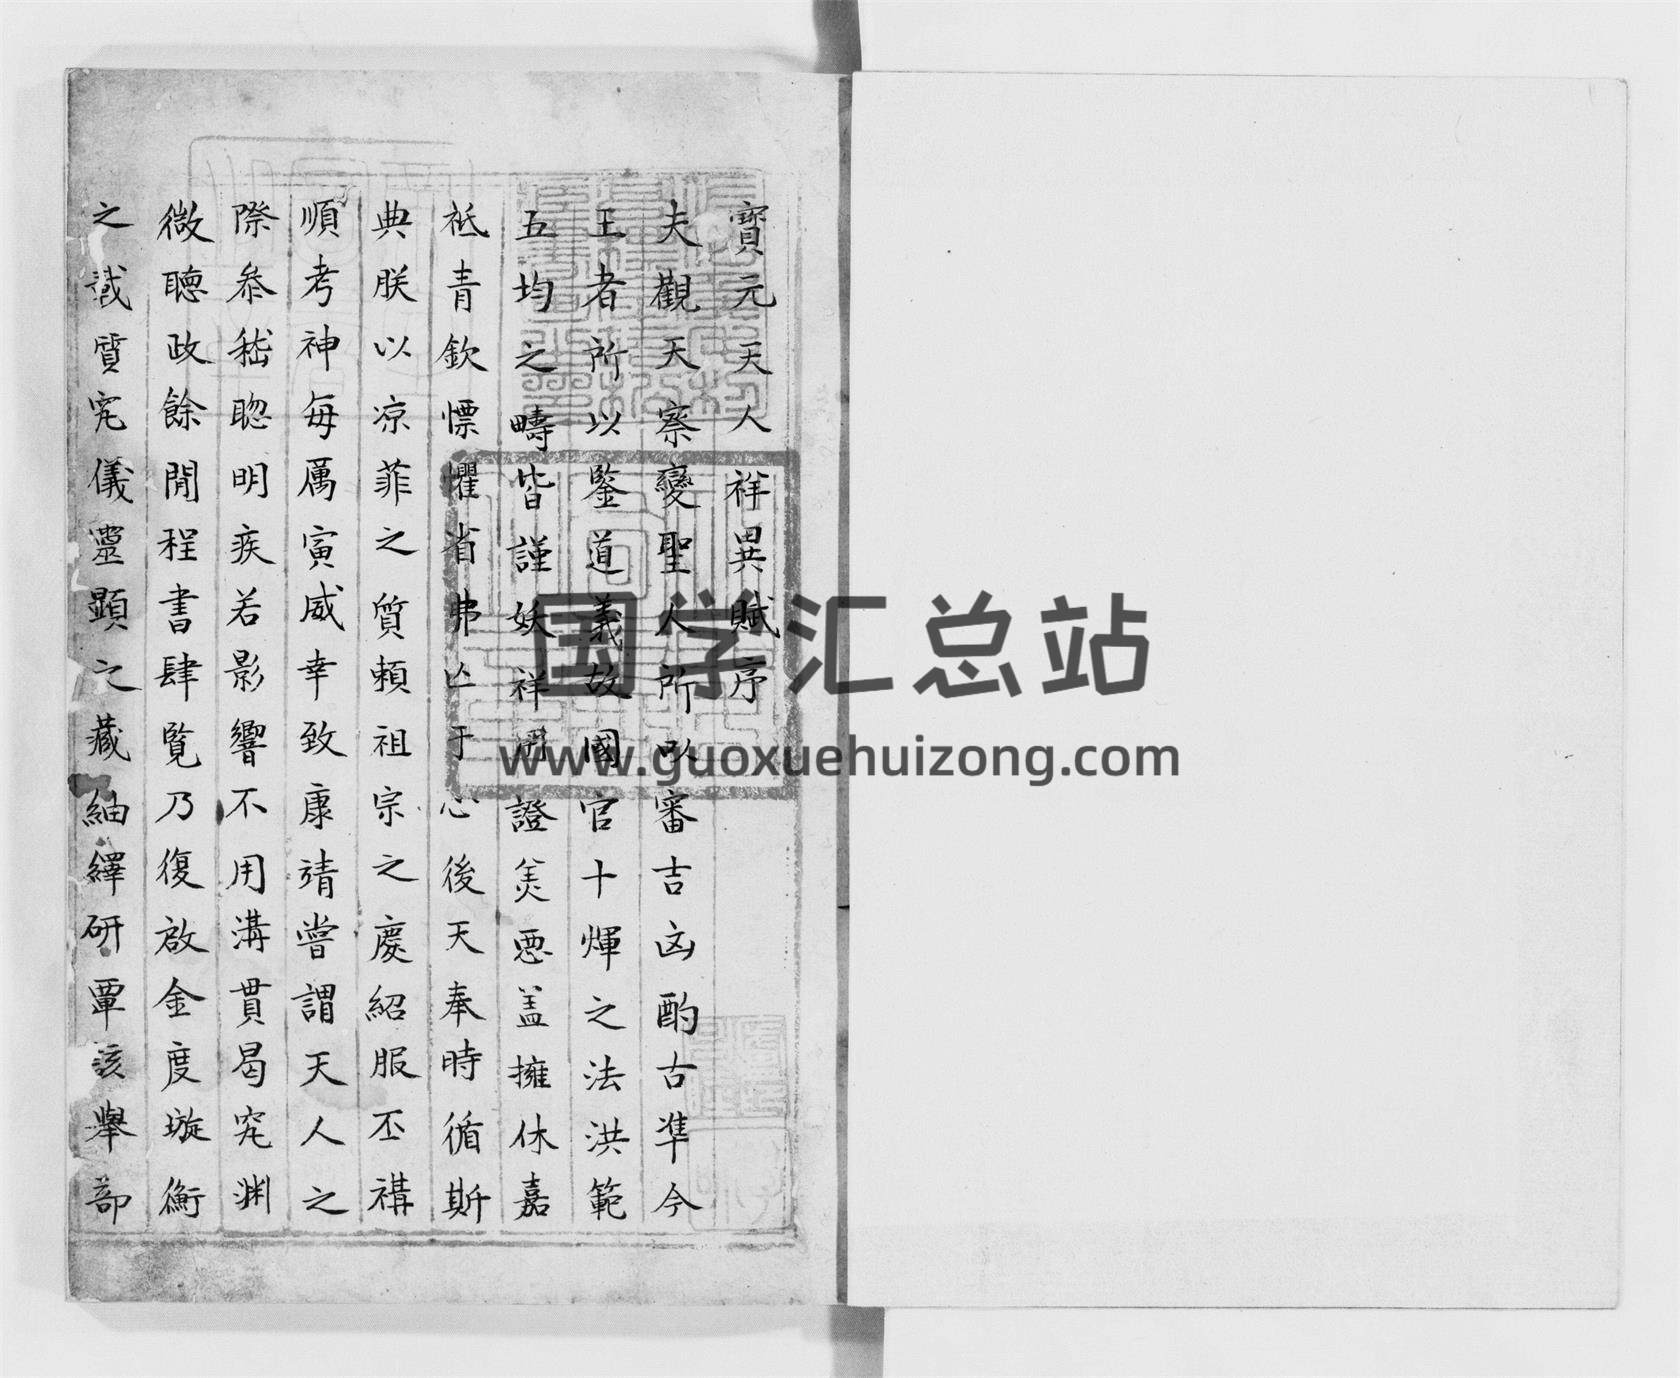 寶元天人祥異賦序
夫觀天察變聖人所以審吉凶酌古凖今
王者所以鑒道義故國官十煇之法洪範
五均之疇皆謹妖祥用證美惡盖擁休嘉
祗青欽慄懼省弗亾于心後天奉時循斯
典朕以凉菲之質頼祖宗之慶紹服丕構
順考神每厲寅威幸致康靖嘗謂天人之
際叅嵇聰明疾若影響不用溝貫曷究渊
微聴政餘閒程書肆覧乃復啟金度璇衡
之議質究儀靈顕之藏紬繹研覃該舉部
国学汇总站
www.guoxuehuizong.com